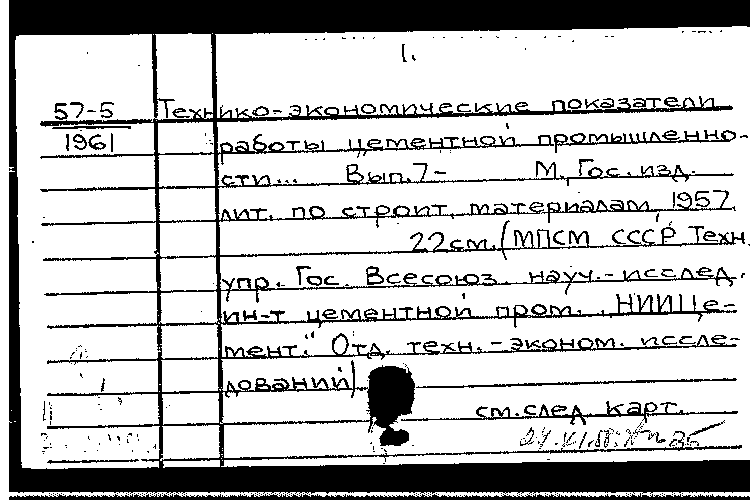 1.
57-5 Технико-экономические показатели
1961 работы цементной промышленно-
сти... Вып.7- М., Гос. изд.
лит. по строит. материалам, 1957.
22см. (МПСМ СССР Техн.
упр. Гос. Всесоюз. науч.-исслед.
ин-т цементной пром. „НИИЦе-
мент." Отд. техн.-эконом. иссле-
дований)
см. след. карт.